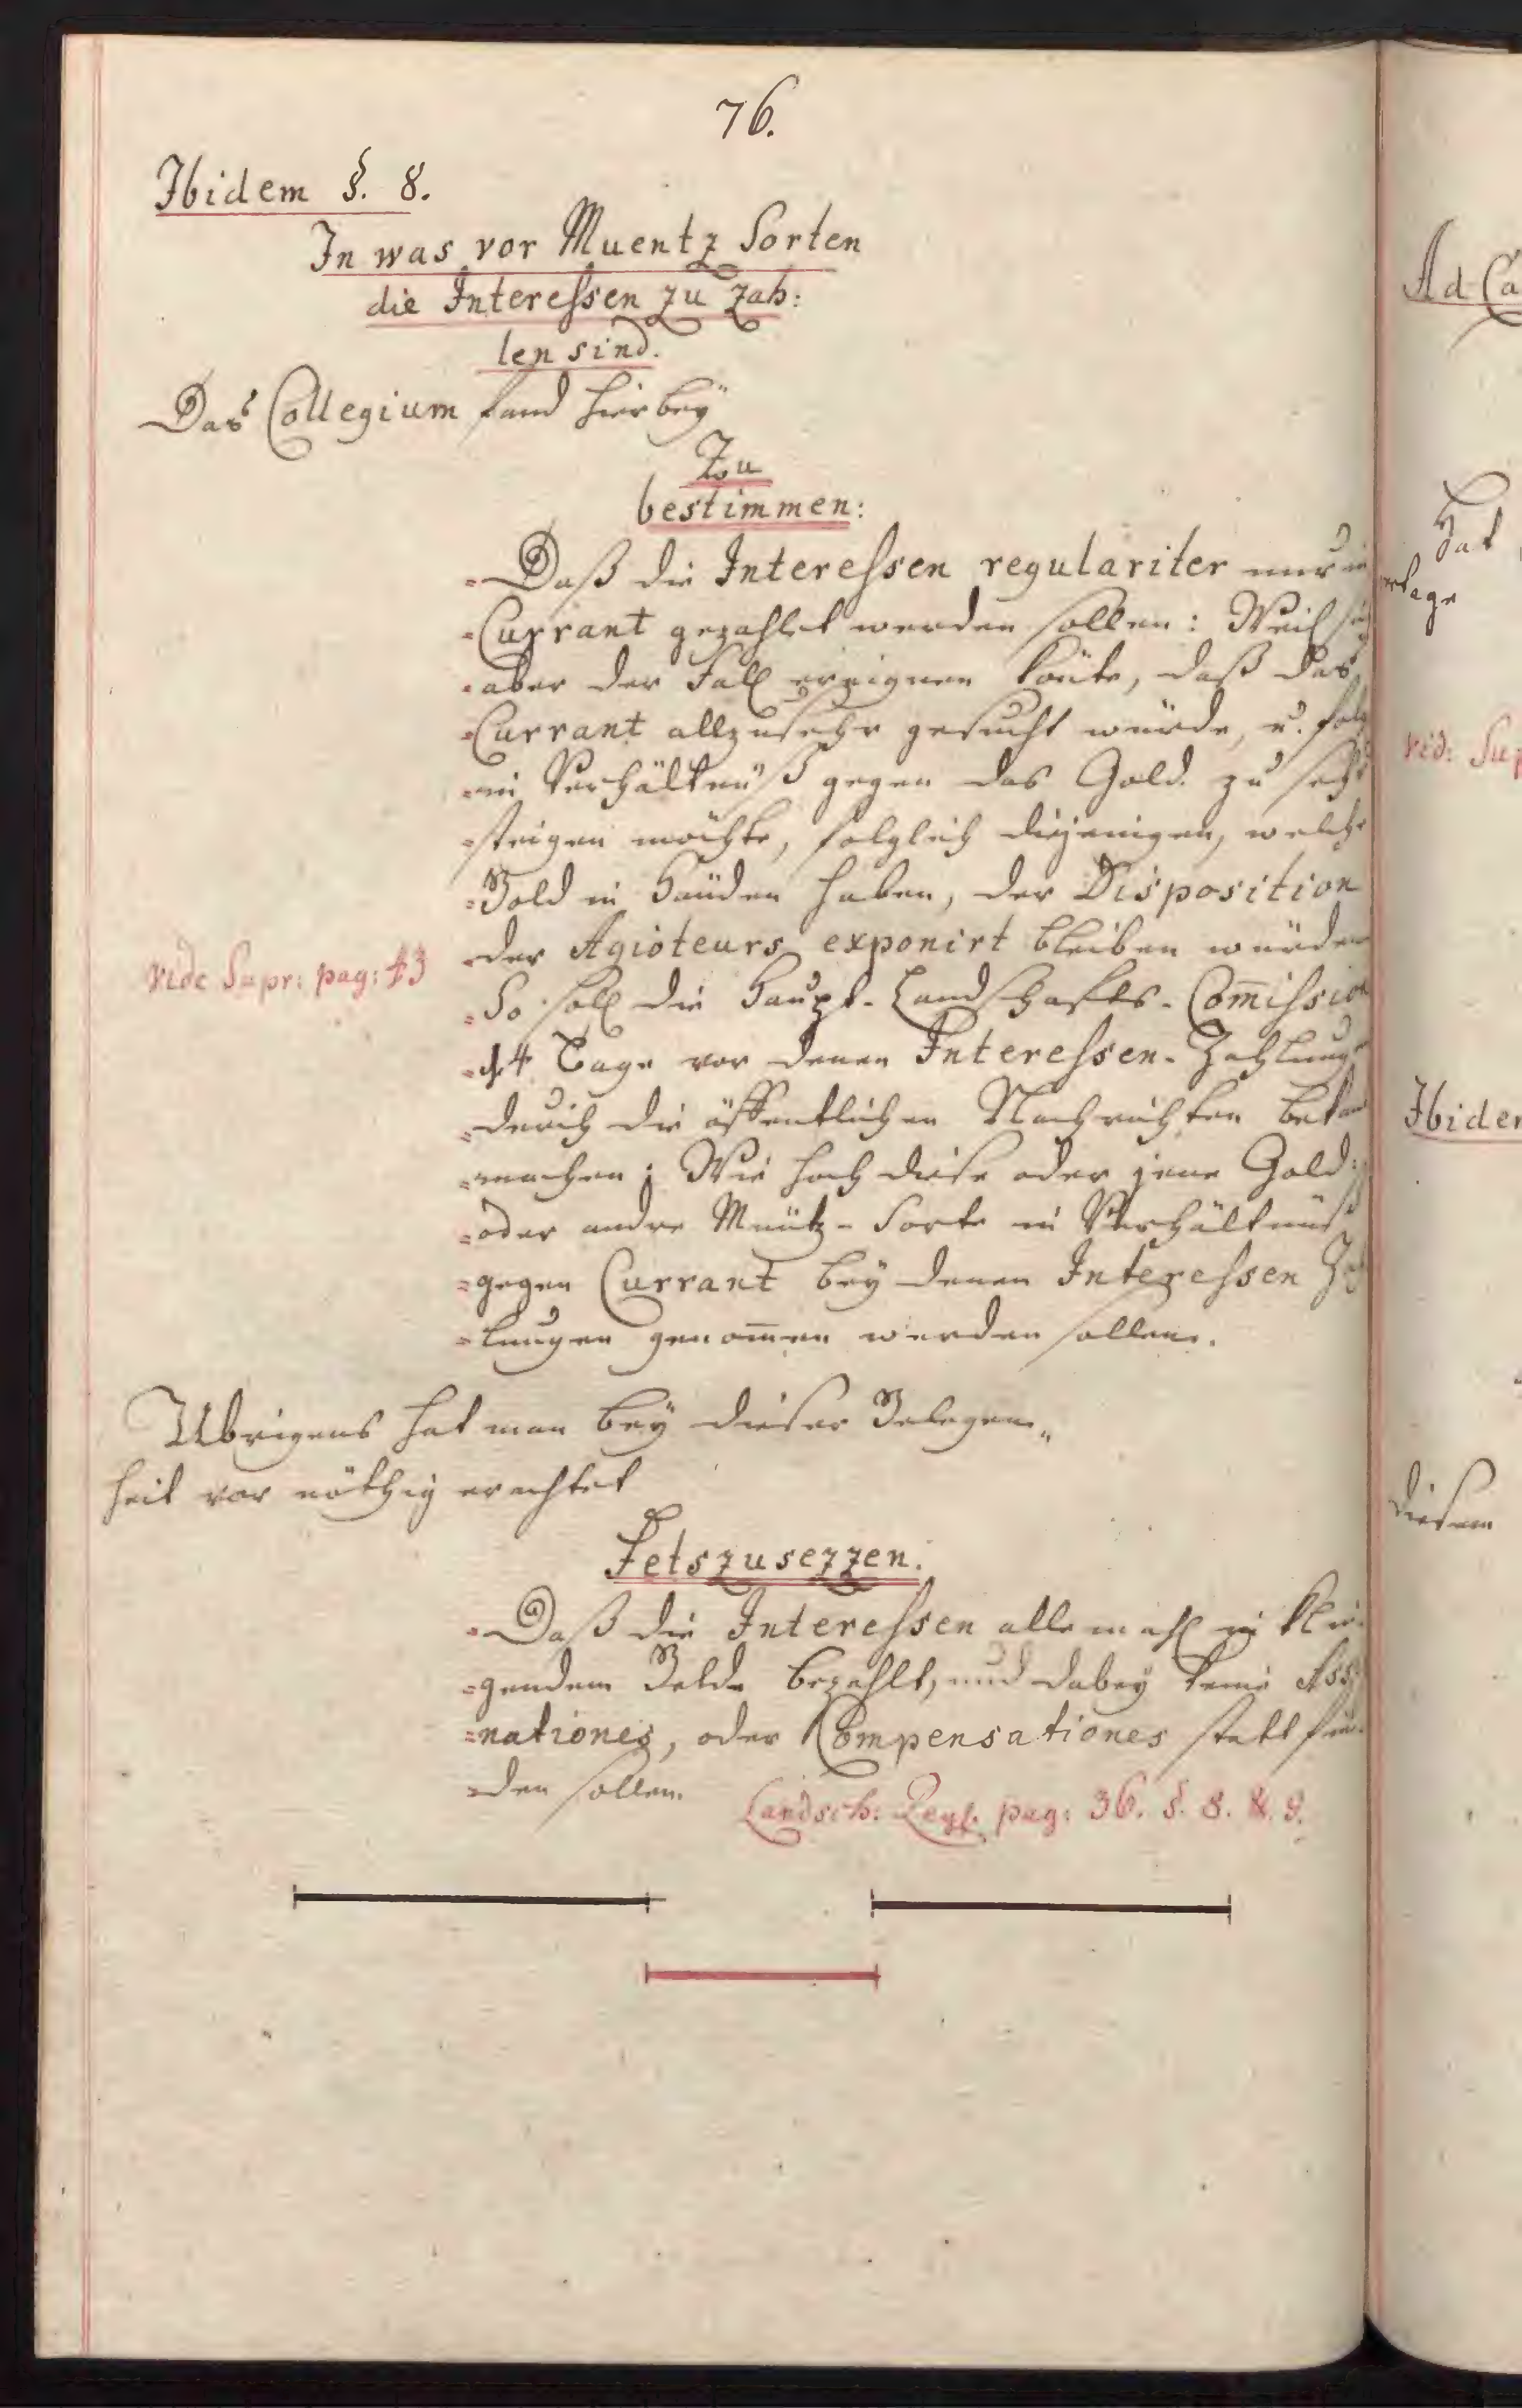 76.
Ibidem §. 8.
In was vor Muentz Sorten
die Interessen zu zah:
len sind.
Das Collegium fand hierbey
Zu
bestimmen:
Daß die Interessen regulariter nur in
Currant gezahlet werden sollen: Weil sich
aber der Fall ereignen könte, daß das
Currant allzusehr gesucht würde, u.
im Verhältnüß gegen das Gold zu sehr
steigen möchte, folglich diejenigen, welche
Gold in Händen haben, der Disposition
der Agioteurs exponirt bleiben würden
So soll die Haupt-Landschafts-Com̅ission
14 Tage vor denen Interessen-Zahlung
durch die öffentlichen Nachrichten bekan
machen: Wie hoch diese oder jene Gold:
oder andre Müntz-Sorte in Verhältnüß
gegen Currant bey denen Interessen Zah
lungen genom̅en werden sollen.
vide Supr: pag: 43
Ubrigens hat man bey dieser Gelegen„
heit vor nöthig erachtet
Fetszusezzen.
Daß die Interessen allemahl in klin
gendem Gelde bezahlt, und dabey keine Assi
nationes, oder Compensationes statt fin
den sollen.
Landsch: Regl. pag: 36. §. 8. &. 9.
Ad Ca
Hat
vid: Sup
Ibidem
diesem